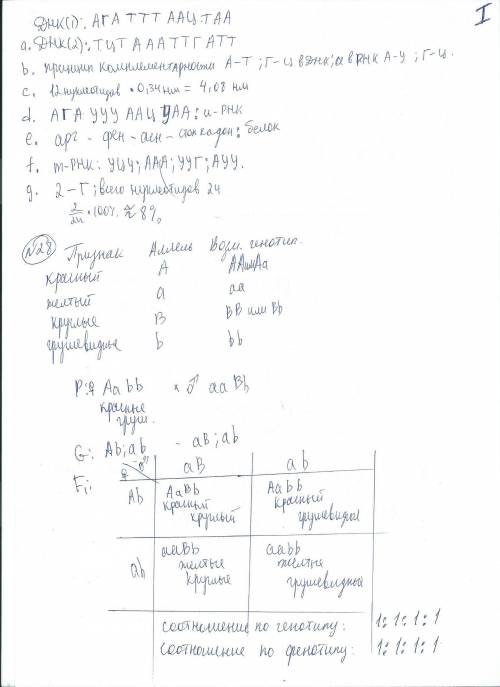 I
ДНК(1): АГА ТТТ ААЦ ТАА
a. ДНК(2): ТЦТ АААТТГ АТТ
b. принцип комплементарности А-Т; Г-Ц в ДНК; а в РНК А-У; Г-Ц.
c. 12 нуклеотидов · 0,34 нм = 4,08 нм
d. АГА УУУ ААЦ УАА: и-РНК
e. арг - фен - асн - стоп кодон: белок
f. т-РНК: УЦУ; ААА; УУГ; АУУ.
g. 2 - Г; всего нуклеотидов 24
2/24 · 100% ≈ 8%
№28 Признак Аллель Возм. генотип.
красный А АА или Аа
желтый а аа
круглые В ВВ или Вb
грушевидные b bb
P: ♀ Aabb × ♂ aaBb
красные
груш.
G: Ab; ab - aB; ab
F₁: ♀ ♂ aB ab
Ab AaBb Aabb
красный красный
круглый грушевидный
ab aaBb aabb
желтые желтые
круглые грушевидные
соотношение по генотипу: 1:1:1:1
соотношение по фенотипу: 1:1:1:1